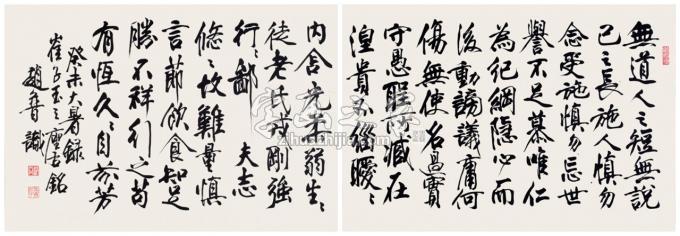 無道人之短無說
己之長施人慎勿
念受施慎勿忘世
譽不足慕唯仁
為紀綱隱心而
後動謗議庸何
傷無使名過實
守愚聖所臧在
涅貴不緇曖々
內含光柔弱生々
徒老氏戒剛強
行々鄙夫志
悠々故難量慎
言節飲食知足
勝不祥行之苟
有恆久々自芬芳
癸未大暑錄
崔子玉之座右銘
趙普識